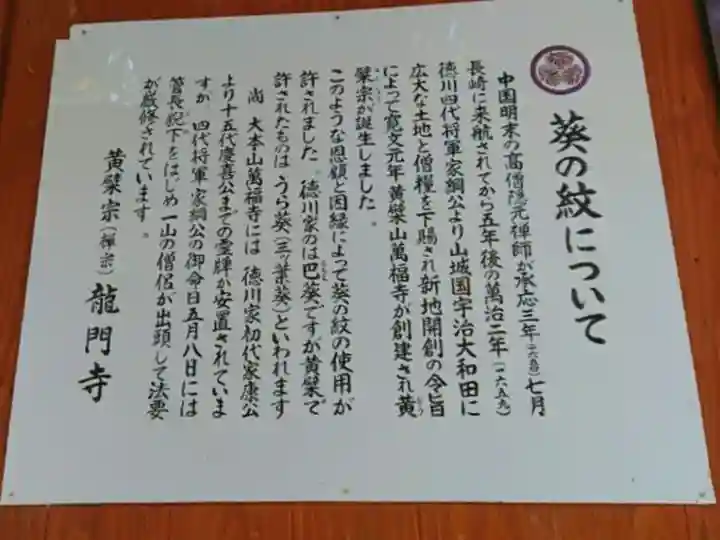 葵の紋について
中国明末の高僧隠元禅師が承応三年(一六五四)七月
長崎に来航されてから五年後の萬治二年(一六五九)
徳川四代将軍家綱公より山城国宇治大和田に
広大な土地と僧糧を下賜され新地開創の令旨
によって寛文元年黄檗山萬福寺が創建され黄
檗宗が誕生しました。
このような恩顧と因縁によって葵の紋の使用が
許されました。徳川家のは巴葵ですが黄檗で
許されたものはうら葵(三ッ葉葵)といわれます
尚 大本山萬福寺には 徳川家初代家康公
より十五代慶喜公までの霊牌が安置されていま
すが 四代将軍家綱公の御命日五月八日には
管長猊下をはじめ一山の僧侶が出頭して法要
が厳修されています。
黄檗宗(禅宗)龍門寺